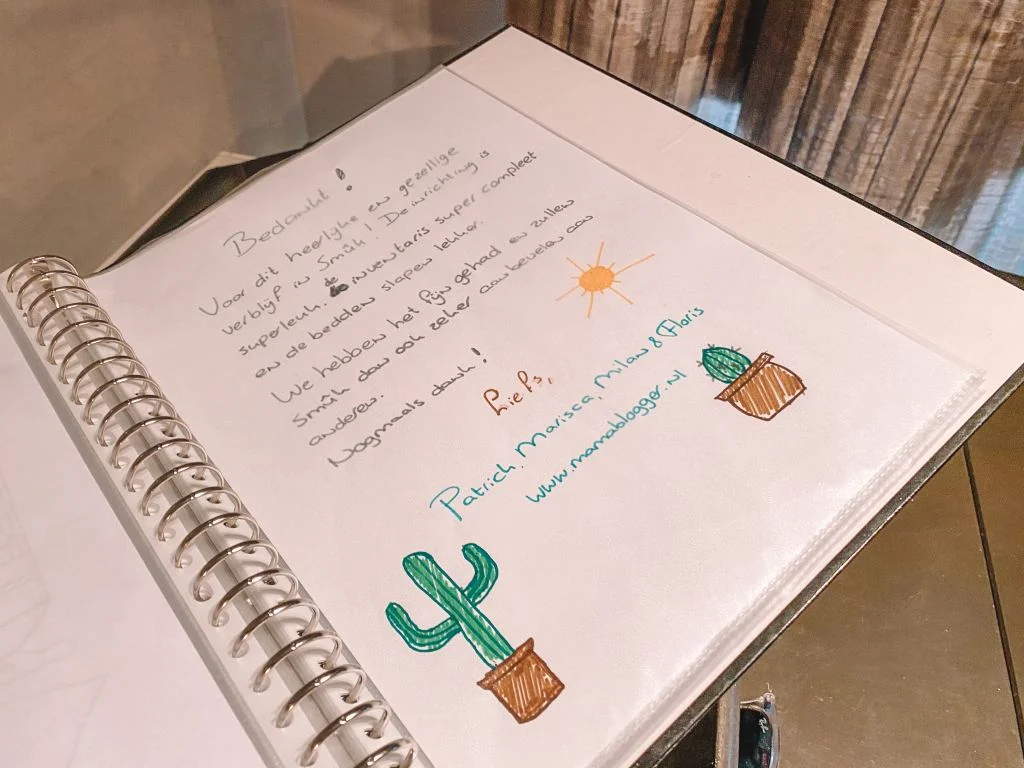 Bedankt!
Voor dit heerlijke en gezellige
verblijf in Smûk! De inrichting is
superleuk. De inventaris super compleet
en de bedden slapen lekker.
We hebben het fijn gehad en zullen
Smûk dan ook zeker aanbevelen aan
anderen.
Nogmaals dank!
Liefs,
Patrick, Marisca, Milan & Floris
www.mamablogger.nl